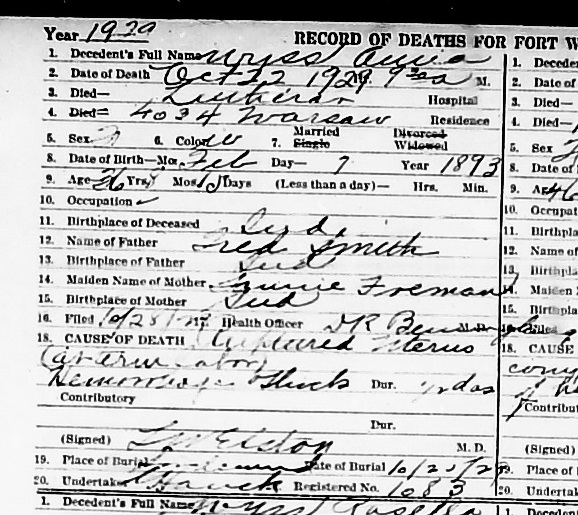 Year 1929 RECORD OF DEATHS FOR FORT W
1. Decedent's Full Name Wyss Anna
2. Date of Death Oct 22 1929 9 30 a M.
3. Died— Lutheran Hospital
4. Died— 4034 Warsaw Residence
5. Sex F 6. Color W 7. Married Single Divorced Widowed
8. Date of Birth—Mo. Feb Day— 7 Year 1893
9. Age 36 Yrs. 8 Mos. 15 Days (Less than a day)— Hrs. Min.
10. Occupation
11. Birthplace of Deceased Ind.
12. Name of Father Fred Smith
13. Birthplace of Father Ind
14. Maiden Name of Mother Foreman
15. Birthplace of Mother Ind
16. Filed 10/28/29 Health Officer
18. CAUSE OF DEATH Ruptured Uterus
labor
Hemorrhage Shock Dur. das
Contributory
Dur.
(Signed) M. D.
19. Place of Burial Date of Burial
20. Undertaker Registered No. 1083
1. Decedent's Full Name Wyss Rosella
1. Decede
2. Date of
3. Died—
4. Died—
5. Sex
8. Date of
9. Age 46
10. Occupat
11. Birthpla
12. Name o
13. Birthpla
14. Maiden
15. Birthpl
18. CAUSE
Contribut
(Signed)
19. Place of
20. Undertak
1. Decedent